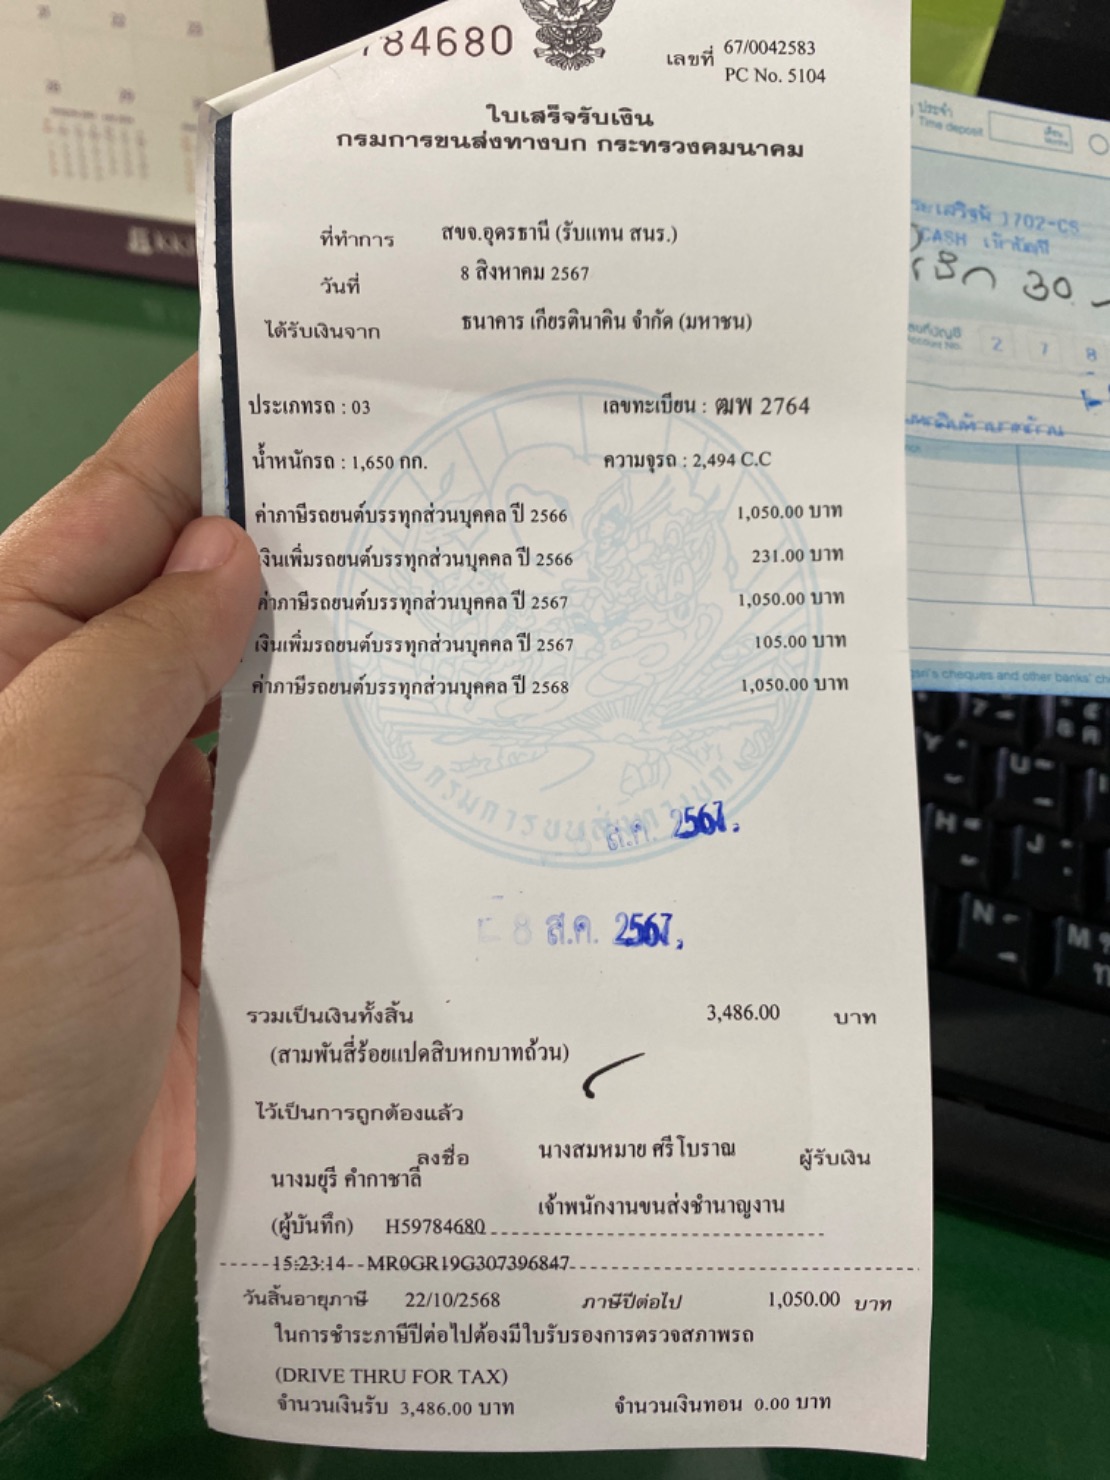 784680
เลขที่ 67/0042583
PC No. 5104
ใบเสร็จรับเงิน
กรมการขนส่งทางบก กระทรวงคมนาคม
ที่ทำการ สขจ.อุดรธานี (รับแทน สนร.)
วันที่ 8 สิงหาคม 2567
ได้รับเงินจาก ธนาคาร เกียรตินาคิน จำกัด (มหาชน)
ประเภทรถ : 03 เลขทะเบียน : ฒพ 2764
น้ำหนักรถ : 1,650 กก. ความจุรถ : 2,494 C.C
ค่าภาษีรถยนต์บรรทุกส่วนบุคคล ปี 2566 1,050.00 บาท
เงินเพิ่มรถยนต์บรรทุกส่วนบุคคล ปี 2566 231.00 บาท
ค่าภาษีรถยนต์บรรทุกส่วนบุคคล ปี 2567 1,050.00 บาท
เงินเพิ่มรถยนต์บรรทุกส่วนบุคคล ปี 2567 105.00 บาท
ค่าภาษีรถยนต์บรรทุกส่วนบุคคล ปี 2568 1,050.00 บาท
กรมการขนส่งทางบก
ส.ค. 2567
8 ส.ค. 2567
รวมเป็นเงินทั้งสิ้น 3,486.00 บาท
(สามพันสี่ร้อยแปดสิบหกบาทถ้วน)
ไว้เป็นการถูกต้องแล้ว
ลงชื่อ นางสมหมาย ศรีโบราณ ผู้รับเงิน
นางมยุรี คำกาชาลี
เจ้าพนักงานขนส่งชำนาญงาน
(ผู้บันทึก) H59784680
15:23:14 MR0GR19G307396847
วันสิ้นอายุภาษี 22/10/2568 ภาษีปีต่อไป 1,050.00 บาท
ในการชำระภาษีปีต่อไปต้องมีใบรับรองการตรวจสภาพรถ
(DRIVE THRU FOR TAX)
จำนวนเงินรับ 3,486.00 บาท จำนวนเงินทอน 0.00 บาท
ประจำ
Time deposit
1702-CS
CASH
30
Account No. 2 7 8
cheques and other banks'
Y
U
H
J
N
M